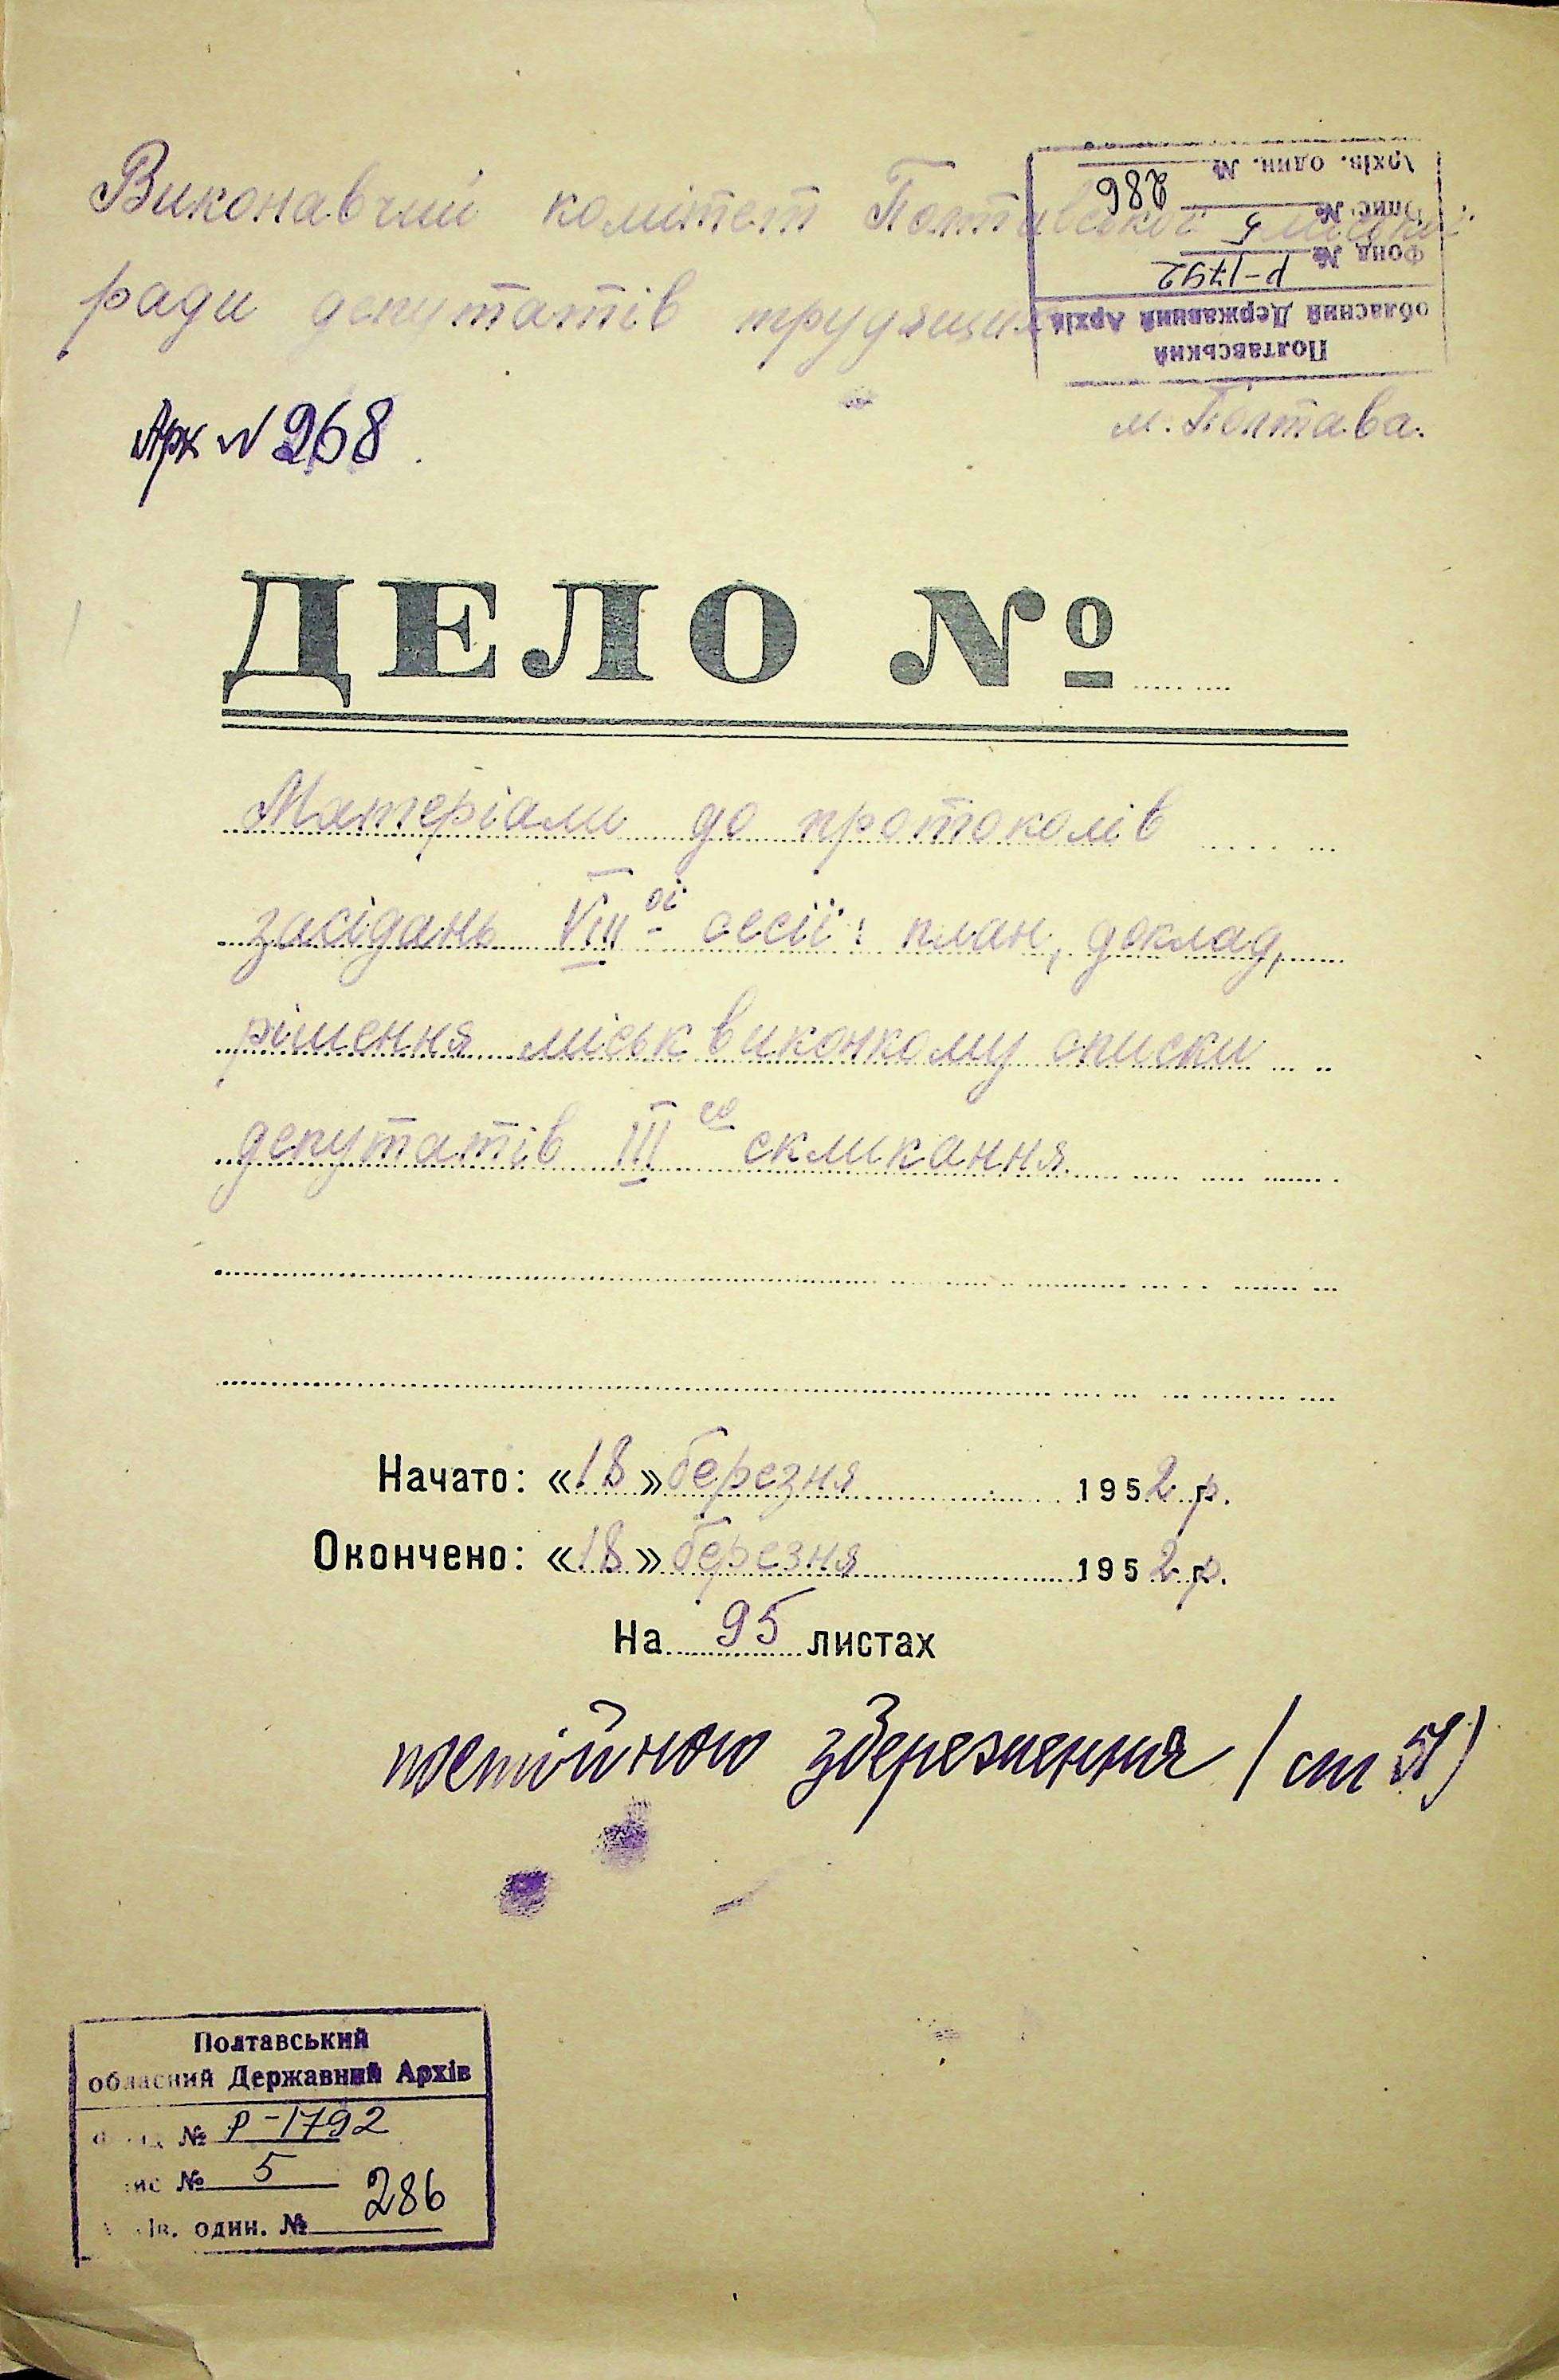 Виконавчий комітет Полтавської міської
ради депутатів трудящих
Архів. один. № 286
Опис № 5
Фонд № Р-1792
обласний Державний Архів
Полтавський
м. Полтава.
Арх № 268
ДЕЛО №
Матеріали до протоколів
засідань VIII-ої сесії: план, доклад,
рішення міськвиконкому списки
депутатів III го скликання
Начато: «18» березня 1952 р.
Окончено: «18» березня 1952 р.
На 95 листах
постійного збереження (ст 51)
Полтавський
обласний Державний Архів
Фонд № Р-1792
Опис № 5
Архів. один. № 286